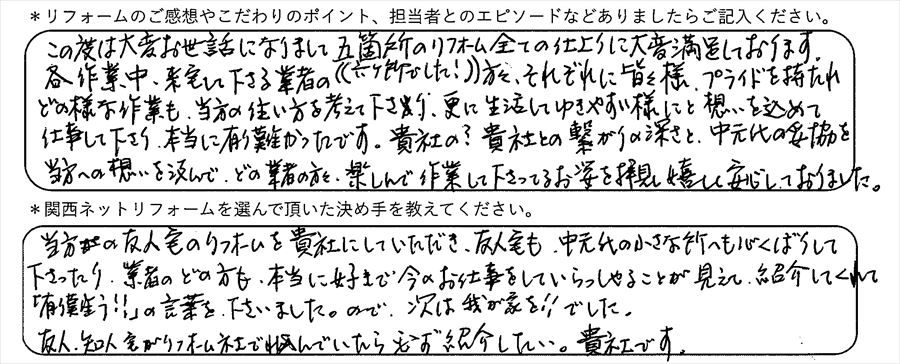 ＊リフォームのご感想やこだわりのポイント、担当者とのエピソードなどありましたらご記入ください。
この度は大変お世話になりまして五箇所のリフォーム全ての仕上りに大変満足しております。
各作業中、来宅して下さる業者の((六ヶ所でした!))方々、それぞれに皆々様、プライドを持たれ
どの様な作業も、当方の住い方を考えて下さり、更に生活してゆきやすい様にと想いを込めて
仕事して下さり、本当に有難かったです。貴社の?貴社との繋がりの深さと、中元代の妥協を
当方への想いを汲んで、どの業者の方々、楽しんで作業して下さってるお姿を拝見し嬉しく安心しておりました。
＊関西ネットリフォームを選んで頂いた決め手を教えてください。
当方の友人宅のリフォームを貴社にしていただき、友人宅も、中元代の小さな所へも心くばりして
下さったり、業者のどの方も、本当に好きで今のお仕事をしていらっしゃることが見えて、紹介してくれて
「有難う!!」の言葉を下さいました。ので、次は我が家を!!でした。
友人、知人宅がリフォーム社で悩んでいたら必ず紹介したい。貴社です。